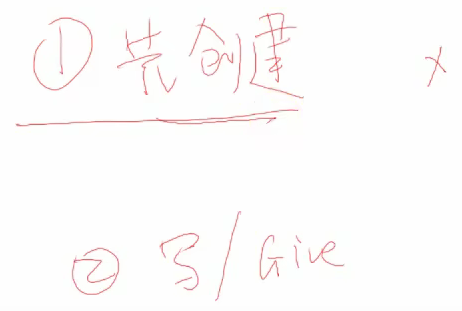 ① 先创建 x
② 写/Give